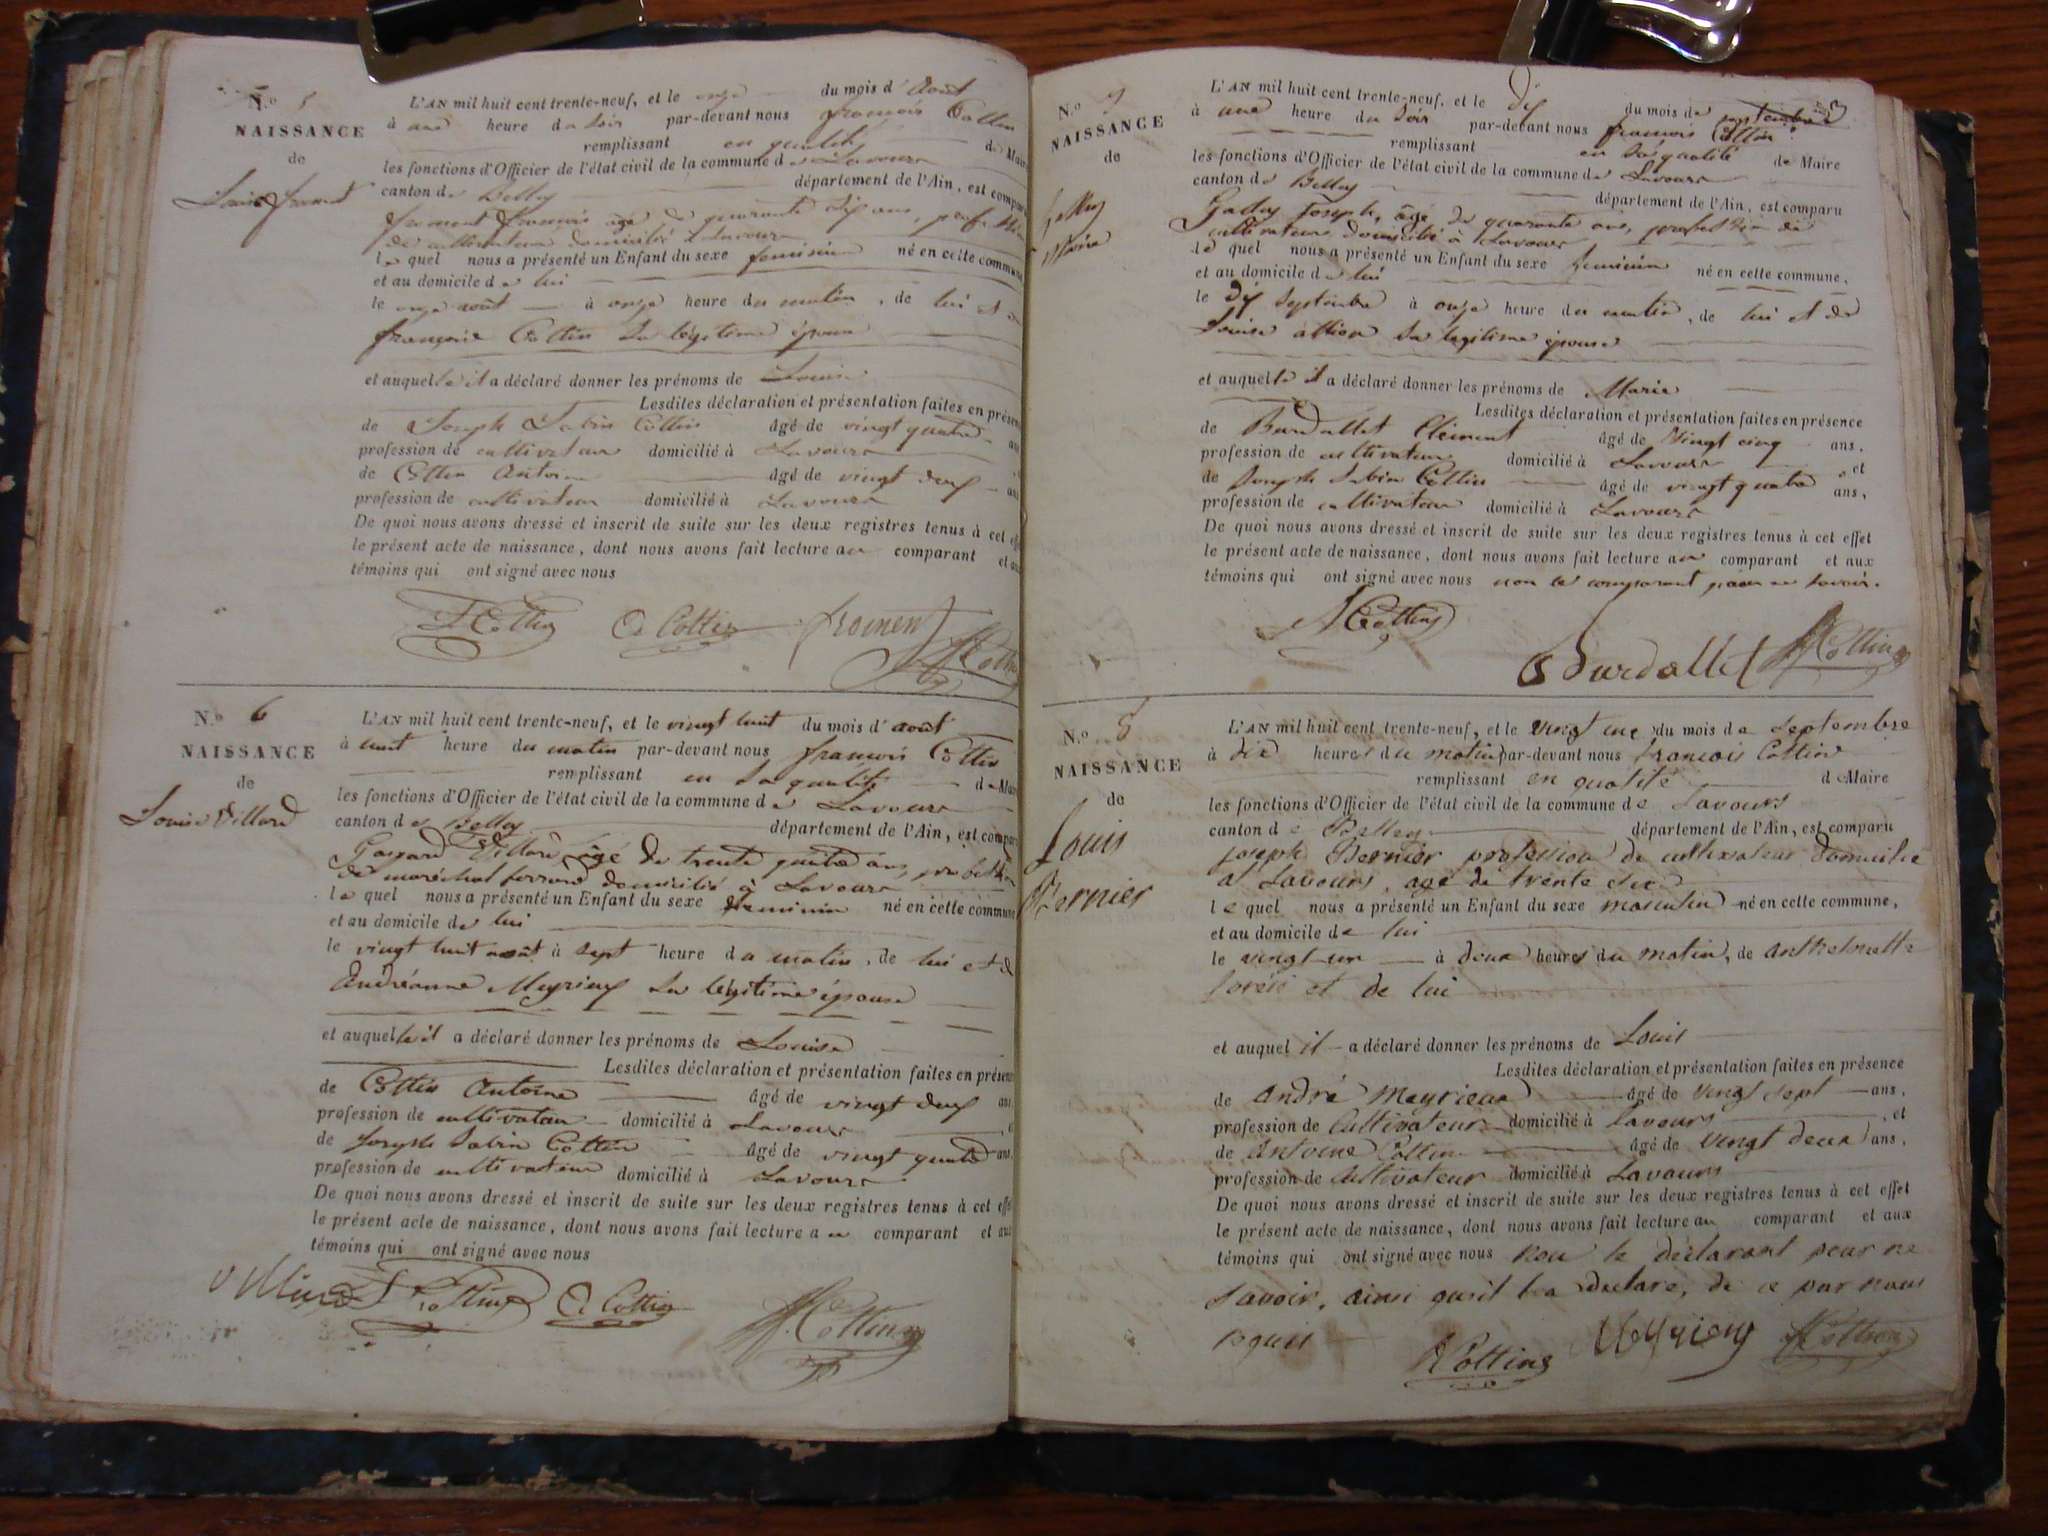 N.o 5
NAISSANCE
de
Louise froment
L'AN mil huit cent trente-neuf, et le onze du mois d'Août
à une heure du soir par-devant nous françois Cottin
remplissant en qualité de Maire
les fonctions d'Officier de l'état civil de la commune de Lavours
canton de Belley département de l'Ain, est comparu
froment françois âgé de quarante dix ans, profession
de cultivateur domicilié à Lavours
le quel nous a présenté un Enfant du sexe feminin né en cette commune
et au domicile de lui
le onze août à onze heure du matin, de lui et de
françoise Cottin sa légitime épouse
et auquelle il a déclaré donner les prénoms de Louise
Lesdites déclaration et présentation faites en présence
de Joseph Sabin Cottin âgé de vingt quatre ans
profession de cultivateur domicilié à Lavours
de Cottin Antoine âgé de vingt deux ans
profession de cultivateur domicilié à Lavours
De quoi nous avons dressé et inscrit de suite sur les deux registres tenus à cet effet
le présent acte de naissance, dont nous avons fait lecture au comparant et aux
témoins qui ont signé avec nous
J S Cottin A Cottin froment
f Cottin
N.o 6
NAISSANCE
de
Louise Villard
L'AN mil huit cent trente-neuf, et le vingt huit du mois d'août
à huit heure du matin par-devant nous françois Cottin
remplissant en sa qualité de Maire
les fonctions d'Officier de l'état civil de la commune de Lavours
canton de Belley département de l'Ain, est comparu
Gaspard Villard âgé de trente quatre ans, profession
de maréchal ferrand domicilié à Lavours
le quel nous a présenté un Enfant du sexe feminin né en cette commune
et au domicile de lui
le vingt huit août à sept heure du matin, de lui et de
Andréanne Meyrieux sa légitime épouse
et auquelle il a déclaré donner les prénoms de Louise
Lesdites déclaration et présentation faites en présence
de Cottin Antoine âgé de vingt deux ans
profession de cultivateur domicilié à Lavours
de Joseph Sabin Cottin âgé de vingt quatre ans
profession de cultivateur domicilié à Lavours
De quoi nous avons dressé et inscrit de suite sur les deux registres tenus à cet effet
le présent acte de naissance, dont nous avons fait lecture au comparant et aux
témoins qui ont signé avec nous
Villard J S Cottin A Cottin f Cottin
N.o 7
NAISSANCE
de
Gallay
Maria
L'AN mil huit cent trente-neuf, et le dix du mois de septembre
à une heure du soir par-devant nous françois Cottin
remplissant en sa qualité de Maire
les fonctions d'Officier de l'état civil de la commune de Lavours
canton de Belley département de l'Ain, est comparu
Gallay Joseph, âgé de quarante ans, profession de
cultivateur domicilié à Lavours
le quel nous a présenté un Enfant du sexe feminin né en cette commune,
et au domicile de lui
le dix septembre à onze heure du matin, de lui et de
Louise sa légitime épouse
et auquelle il a déclaré donner les prénoms de Maria
Lesdites déclaration et présentation faites en présence
de Burdallet Clément âgé de vingt cinq ans,
profession de cultivateur domicilié à Lavours et
de Joseph Sabin Cottin âgé de vingt quatre ans,
profession de cultivateur domicilié à Lavours
De quoi nous avons dressé et inscrit de suite sur les deux registres tenus à cet effet
le présent acte de naissance, dont nous avons fait lecture au comparant et aux
témoins qui ont signé avec nous non le comparant pour ne savoir.
J S Cottin
Burdallet f Cottin
N.o 8
NAISSANCE
de
Louis
Bernier
L'AN mil huit cent trente-neuf, et le vingt une du mois de septembre
à dix heures du matin par-devant nous francois Cottin
remplissant en qualité de Maire
les fonctions d'Officier de l'état civil de la commune de Lavours
canton de Belley département de l'Ain, est comparu
joseph Bernier profession de cultivateur domicilié
à Lavours, agé de trente
le quel nous a présenté un Enfant du sexe masculin né en cette commune,
et au domicile de lui
le vingt un à deux heures du matin, de anthelmette
et de lui
et auquel il a déclaré donner les prénoms de Louis
Lesdites déclaration et présentation faites en présence
de André Meyrieux âgé de vingt sept ans,
profession de Cultivateur domicilié à Lavours, et
de Antoine Cottin âgé de vingt deux ans,
profession de Cultivateur domicilié à Lavours
De quoi nous avons dressé et inscrit de suite sur les deux registres tenus à cet effet
le présent acte de naissance, dont nous avons fait lecture au comparant et aux
témoins qui ont signé avec nous non le déclarant pour ne
savoir, ainsi qu'il l'a déclaré, de ce par nous
requis
A Cottin Meyrieux f Cottin